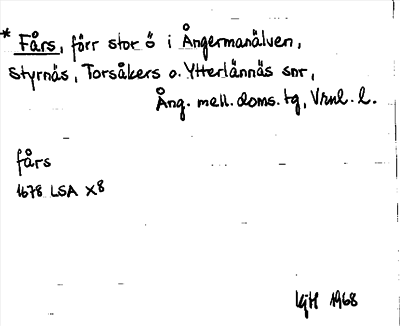 * Fårs, förr stor ö i Ångermanälven,
Styrnäs, Torsåkers o. Ytterlännäs snr,
Ång. mell. doms. tg, Vrnl. l.
fårs
1678 LSA X8
KjH 1968